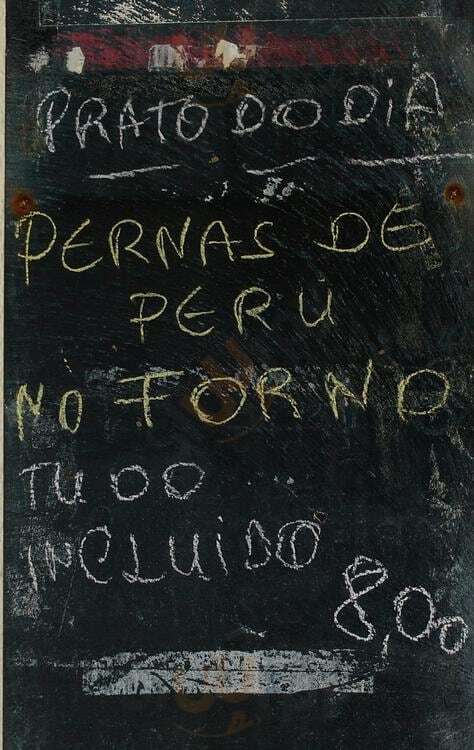 PRATO DO DiA
PERNAS DE
PERU
NO FORNO
TUDO
INCLUiDO
8,00